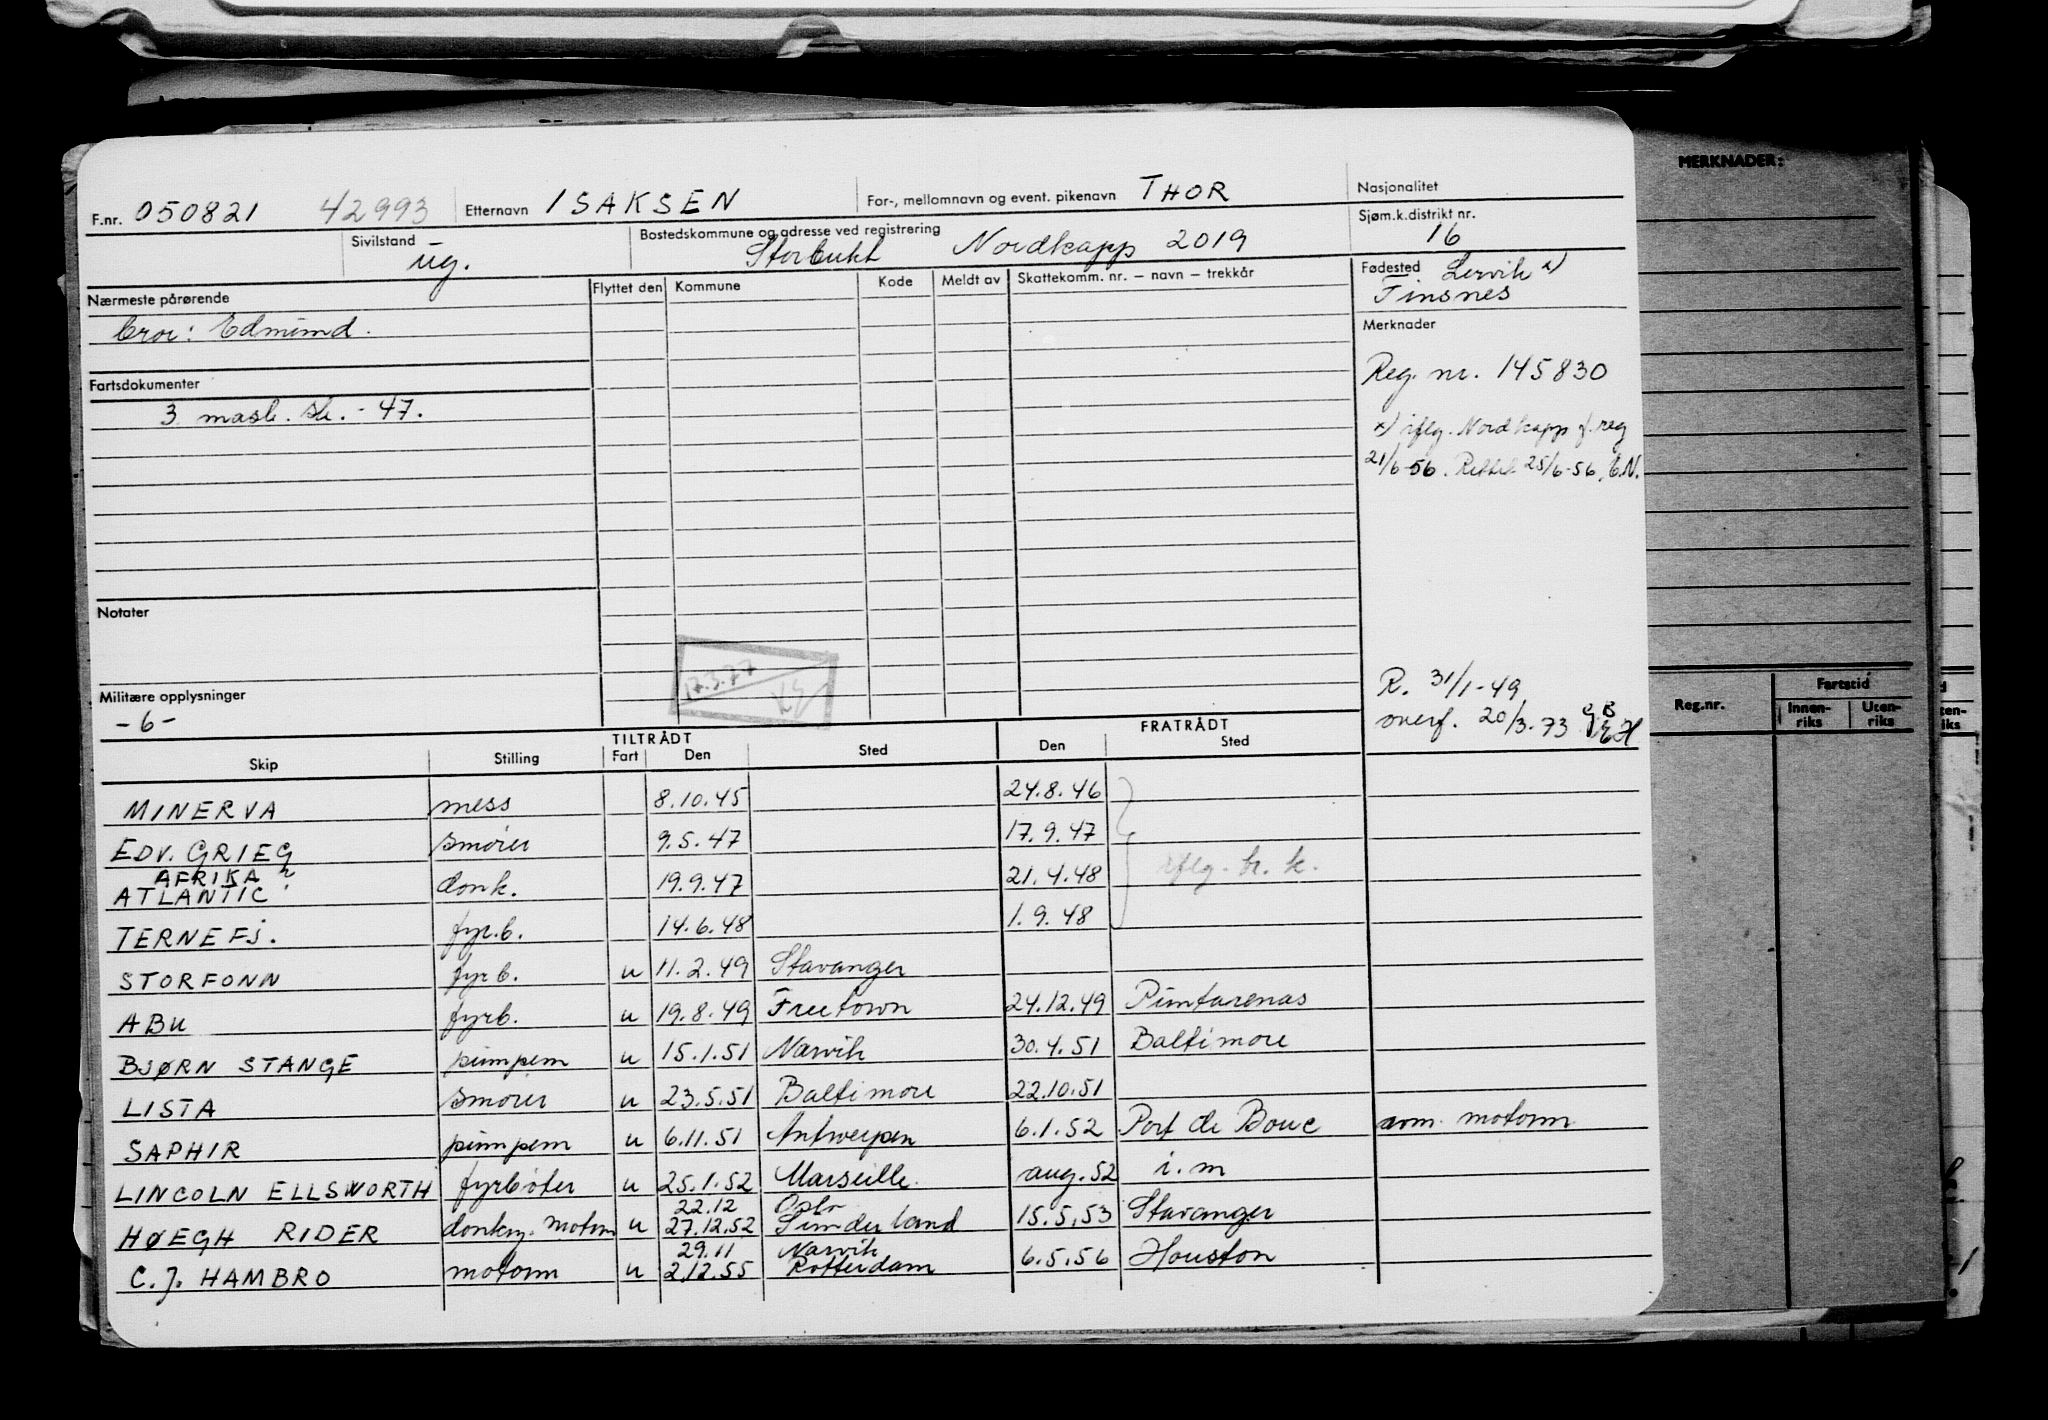 MERKNADER:
F.nr. 050821 42993 Etternavn ISAKSEN For-, mellomnavn og event. pikenavn THOR Nasjonalitet
Sivilstand ug. Bostedskommune og adresse ved registrering Storbukt Nordkapp 2019 Sjøm.k.distrikt nr. 16
Nærmeste pårørende Flyttet den Kommune Kode Meldt av Skattekomm. nr. — navn — trekkår Fødested Lervik x)
Finsnes
bror: Edmund. Merknader
Fartsdokumenter Reg. nr. 145830
3 mask. sk. - 47.
x) iflg. Nordkapp f. reg
21/6-56. Rettet 25/6-56.
Notater
17.3.77
Militære opplysninger R. 31/1-49
-6- overf. 20/3-73
Reg.nr. Fartstid
Innen-riks Uten-riks
TILTRÅDT FRATRÅDT
Skip Stilling Fart Den Sted Den Sted
MINERVA mess 8.10.45 24.8.46
EDV. GRIEG smører 9.5.47 17.9.47
AFRIKA ?
ATLANTIC donk. 19.9.47 21.4.48 iflg. br. k.
TERNEFJ. fyr.b. 14.6.48 1.9.48
STORFONN fyrb. u 11.2.49 Stavanger
ABU fyrb. u 19.8.49 Freetown 24.12.49 Puntarenas
BJØRN STANGE pumpem u 15.1.51 Narvik 30.4.51 Baltimore
LISTA smører u 23.5.51 Baltimore 22.10.51
SAPHIR pumpem u 6.11.51 Antwerpen 6.1.52 Port de Bouc avm. motorm
LINCOLN ELLSWORTH fyrbøter u 25.1.52 Marseille. aug. 52 i. m
22.12 Oslo
HØEGH RIDER donkm. motorm u 27.12.52 Sunderland 15.5.53 Stavanger
29.11 Narvik
C. J. HAMBRO motorm u 2.12.55 Rotterdam 6.5.56 Houston